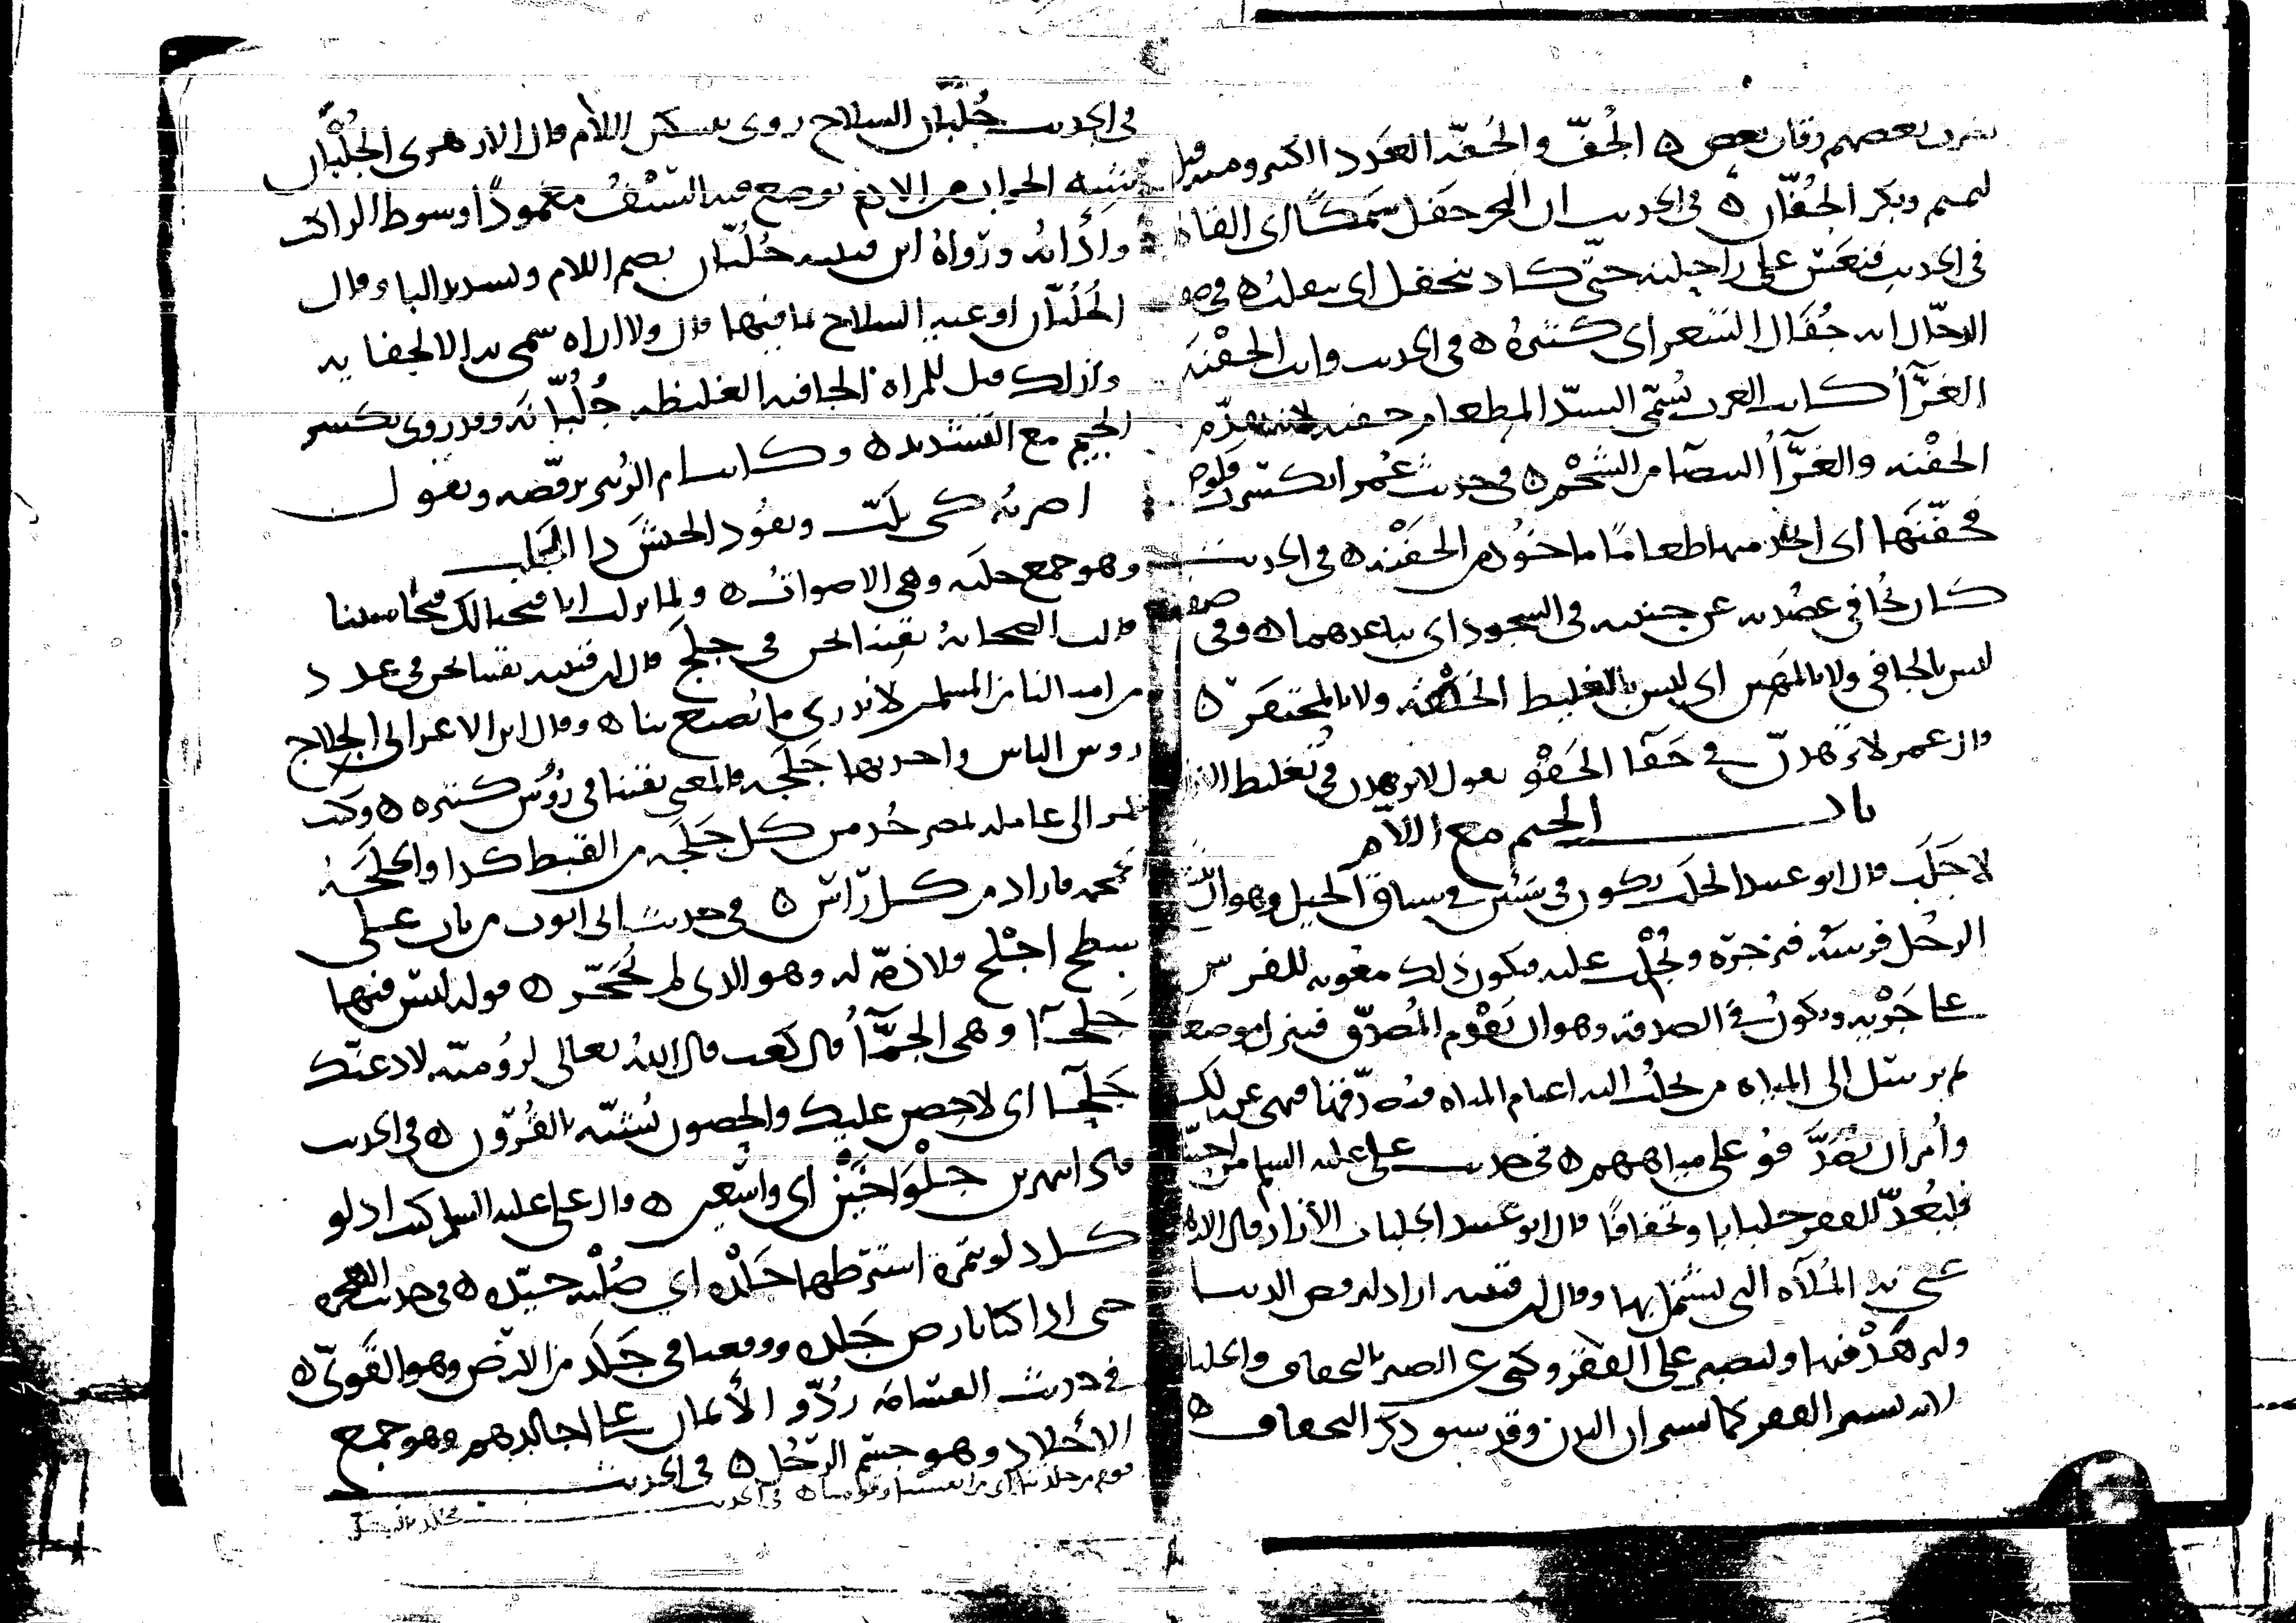 بعضهم رقاب بعض ه الجُفّ والجُفّه العدد الكثير ومنه قيل
لتميم وبكر الجُفّان ه في الحديث ان البحر جفل سمكًا اى القاه
في الحديث فنعس على راحلته حتّى كاد ينجفل اى ينقلب ه في صفه
الدجّال انه جُفال الشعر اى كثيره ه في الحديث وانت الجفْنه
الغرّآء كانت العرب تُسمّى السيّد المطعام جفنه لانه يقدّم
الجفْنه والغرّآءُ البيضآ من الشحْم ه في حديث عُمر انكسرت قلوص
فجفّنها اى اتخذ منها طعامًا ماخوذ من الجفْنه ه في الحديث
كان يُجافى عضُديه عن جنبيه في السجود اى يباعدهما ه وفى صفته
ليس بالجافى ولا بالمهين اى ليس بالغليظ الخلقه ولا بالمحتقر ه
قال عمر لا تزهدنّ في جفآ الحقْو يقول لا تزهدن في تغليظ الازار
باب الجيم مع اللام
لا جَلَب قال ابو عبيد الجلب يكون في شيئين في سباق الخيل وهو ان يتبع
الرجُل فرسه فيزجره ويُجلب عليه فيكون ذلك معونه للفرس
على جَرْيه ويكونُ في الصدقه وهو ان يَقْدم المُصدّق فينزل موضعا
ثم يرسل الى المياه من يجلبُ اليه اغنام المياه فيُصدّقها فنهى عن ذلك
وأُمر ان يُصَدَّقو على مياههم ه في حديث على عليه السلم من احبّنا
فليُعدّ للفقر جلبابا وتجفافًا قال ابو عبيد الجلباب الازار قال الازهرى
عنى به المُلآه التى يشتمل بها وقال ابن قتيبه اراد ليرفض الدنيا
وليزهَدْ فيها وليصبر على الفقر وكنى عن الصبر بالتجفاف والجلباب
لانه يستر الفقر كما يستران البدن وقد سبق ذكر التجفاف ه
في الحديث جُلْبّان السلاح روى بسكون اللام قال الازهرى الجُلْبان
شبه الجراب من الادم يوضع فيه السَيْفُ مغمودًا وسوط الراكب
وأداته ورَواهُ ابن قتيبه جُلُبّان بضم اللام وتشديد الباء وقال
الجُلُبّان اوعيه السلاح بما فيها قال ولا اراه سمى به الا لجفايه
ولذلك قيل للمراه الجافيه الغليظه جُلُبّانه وقد روى بكسر
الجيم مع التشديد ه وكانت ام الزُبير ترقّصه وتقول
اضربُه كى يلَبّ ويقود الجيشَ ذا الجَلب
وهو جمع جلبه وهي الاصوات ه ولما نزلت انا فتحنا لك فتحًا مبينا
قالت الصحابه بقينا نحن في جلج قال ابن قتيبه بقينا نحن في عدد
من امثالنا من المسلمين لا ندرى ما يُصنع بنا ه وقال ابن الاعرابى الجلاج
روس الناس واحدتها جَلَجه والمعنى بقينا في رُؤُس كثيره ه وكتب
عمر الى عامله بمصر خُذ من كل جَلَجه من القبط كذا والجلَجَه
جمجمه فاراد من كل رَاس ه في حديث ابى ايوب من بات على
سطح اجْلَح فلا ذمّه له وهو الذى لم يُحجّر ه قوله ليس فيها
جلحآءُ وهى الجمّآءُ قال كعب قال اللهُ تعالى لرُوميّه لادعنّك
جَلحآء اى لا حصن عليك والحصون تُشبّه بالقُرون ه في الحديث
فاذا نهرين جلْوَاخَيْن اى واسعين ه وقال على عليه السلم كنت ادلو
كل دلو بتمره اشترطها جَلْده اى صُلْبه جيّده ه في حديث الهجره
حتى اذا كنا بارض جَلده ووقعنا في جَلَد من الارض وهو القوىّ ه
في حديث القسامَه رُدّو الأيمان على اجالدهم وهو جمع
الاجلاد وهو جسم الرجُل ه في الحديث
قوم من جلدتنا اى من انفسنا وقومنا ه في الحديث